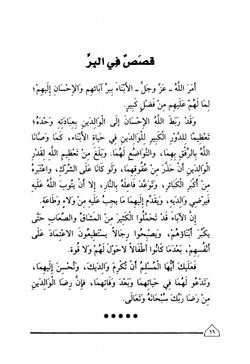 قصص في البر
أمر الله - عز وجل - الأبناء ببر آبائهم والإحسان إليهم؛
لما لهم عليهم من فضل كبير.
وقد ربط الله الإحسان إلى الوالدين بعبادته وحده؛
تعظيما للدور الكبير للوالدين في حياة الأبناء، كما وصانا
الله بالرفق بهما، والتواضع لهما. وبلغ من تعظيم الله لقدر
الوالدين أن حذر من عقوقهما، ولو كانا على الشرك، واعتبره
من أكبر الكبائر، وتوعد فاعله بالنار، إلا أن يتوب الله عليه
فيرضي والديه، ويقدم إليهما ما يجب عليه من ولاء وطاعة.
إن الآباء قد تحملوا الكثير من المشاق والصعاب حتى
يكبر أبناؤهم، ويصبحوا رجالا يستطيعون الاعتماد على
أنفسهم، بعدما كانوا أطفالا لا حول لهم ولا قوة.
فعليك أيها المسلم أن تكرم والديك، وتحسن إليهما،
وتدعو لهما في حياتهما وبعد وفاتهما، فإن رضا الوالدين
من رضا ربك سبحانه وتعالى.
*****